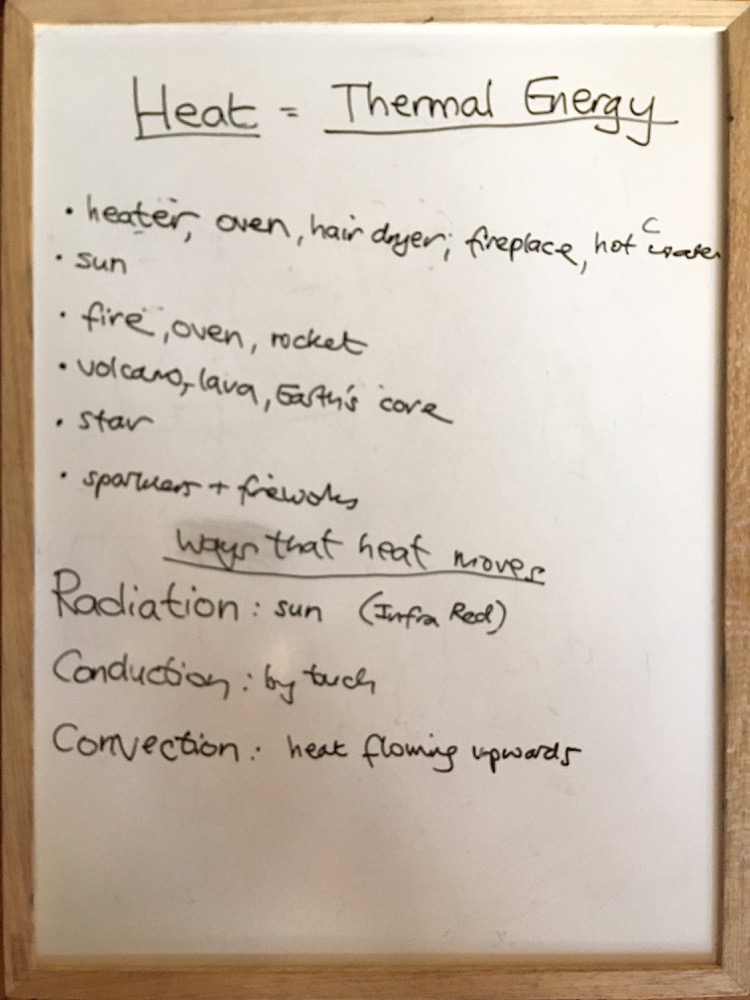 Heat = Thermal Energy
• heater, oven, hair dryer, fireplace, hot water
• sun
• fire, oven, rocket
• volcano, lava, Earth's core
• star
• sparklers + fireworks
Ways that heat moves
Radiation: sun (Infra Red)
Conduction: by touch
Convection: heat flowing upwards